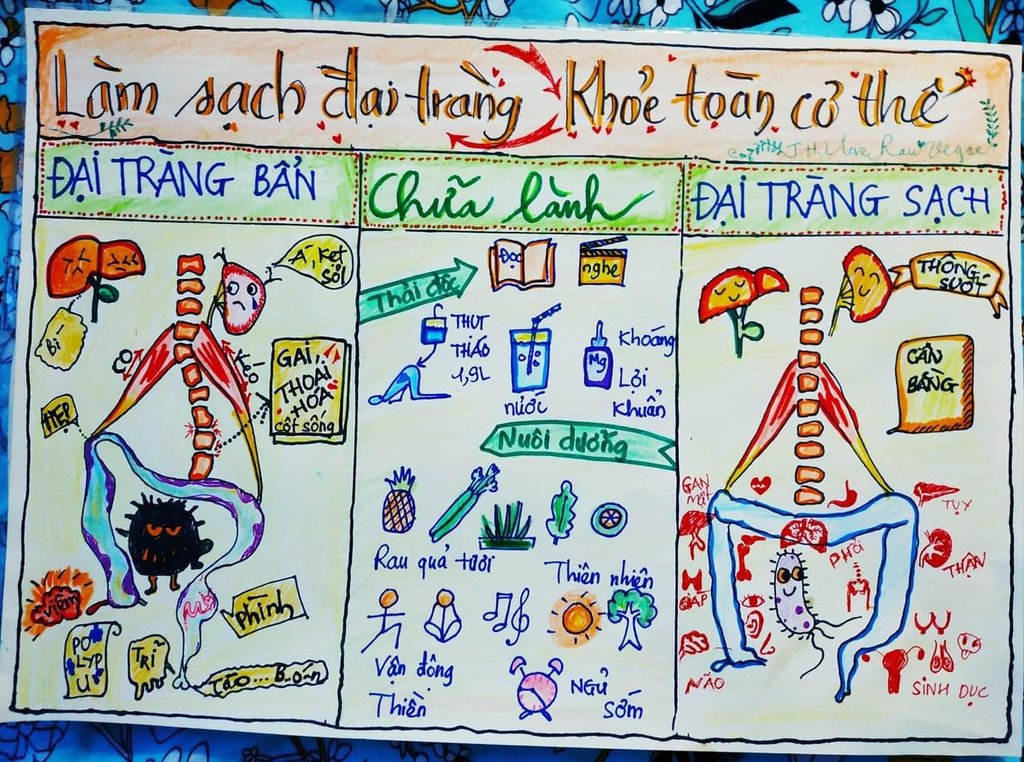 Làm sạch đại tràng Khỏe toàn cơ thể
J.H. I love Raw Vegan
ĐẠI TRÀNG BẨN
Á, kẹt
sỏi
Bí
CO
Kéo
GAI,
THOÁI
HÓA
cột sống
HẸP
Viêm
PO
LYP
U
TRĨ
phình
TÁO... B..ó..n
Chữa lành
Đọc
nghe
Thải độc
THỤT
THÁO
1,9L
nước
Mg
Khoáng
Lợi
khuẩn
Nuôi dưỡng
Rau quả tươi
Thiên nhiên
Vận động
Thiền
NGỦ
SỚM
ĐẠI TRÀNG SẠCH
THÔNG
SUỐT
CÂN
BẰNG
GAN
mật
TỤY
PHỔI
THẬN
GIÁP
NÃO
SINH DỤC